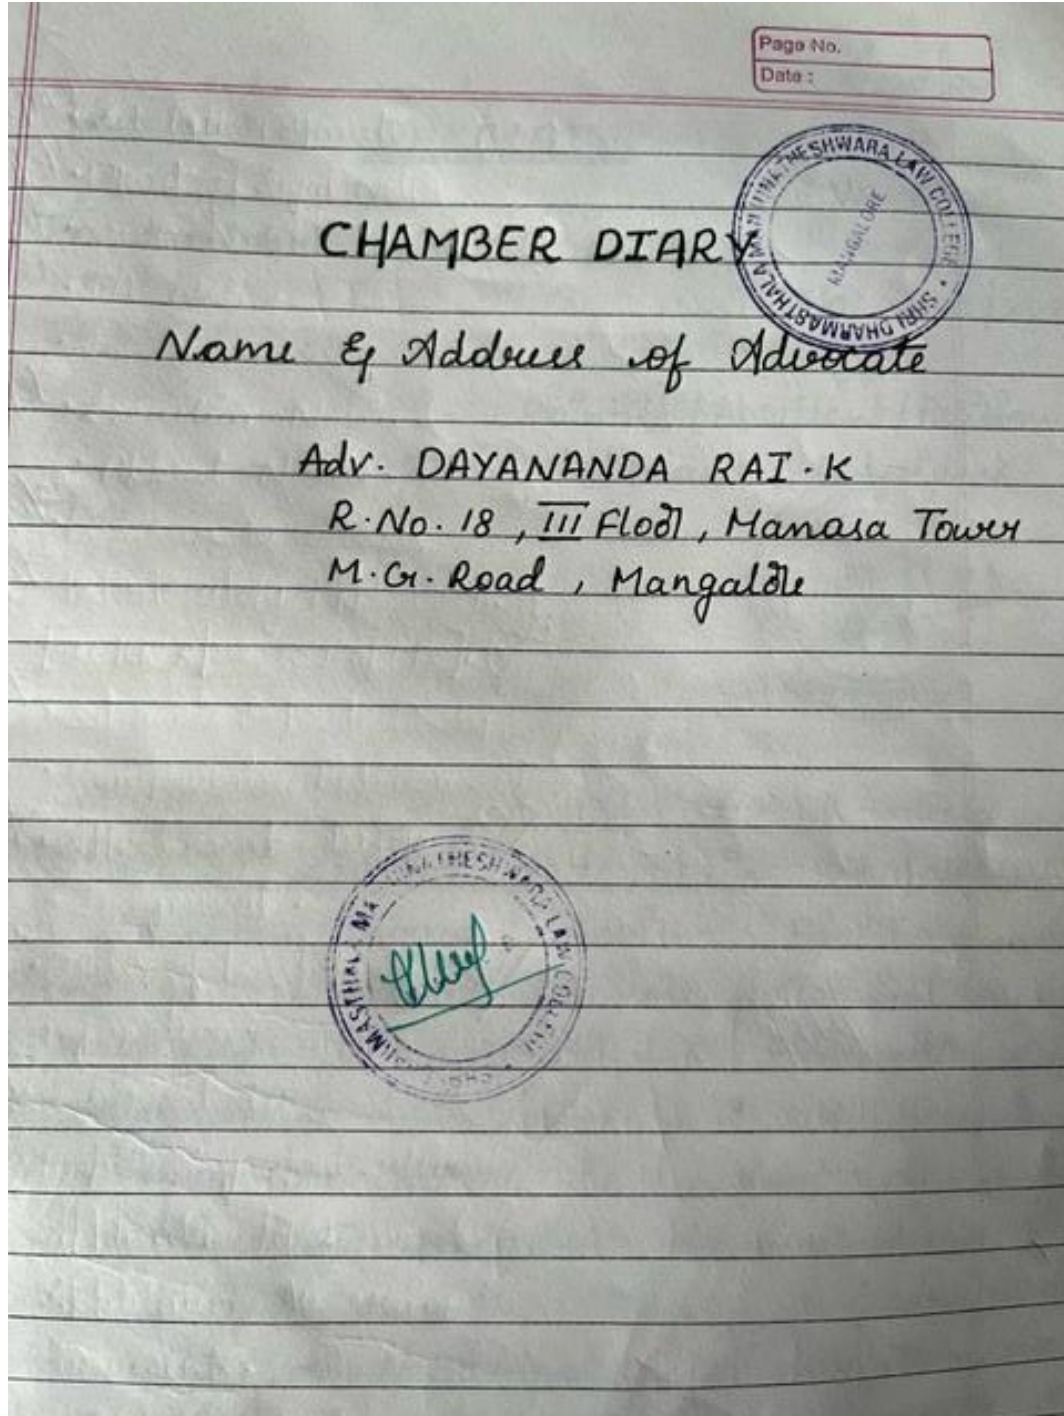 Page No.
Date :
SHRI DHARMASTHALA MANJUNATHESHWARA LAW COLLEGE
MANGALORE
CHAMBER DIARY
Name & Address of Advocate
Adv. DAYANANDA RAI. K
R.No. 18, III Floor, Manasa Tower
M.G. Road, Mangalore
MANJUNATHESHWARA LAW COLLEGE